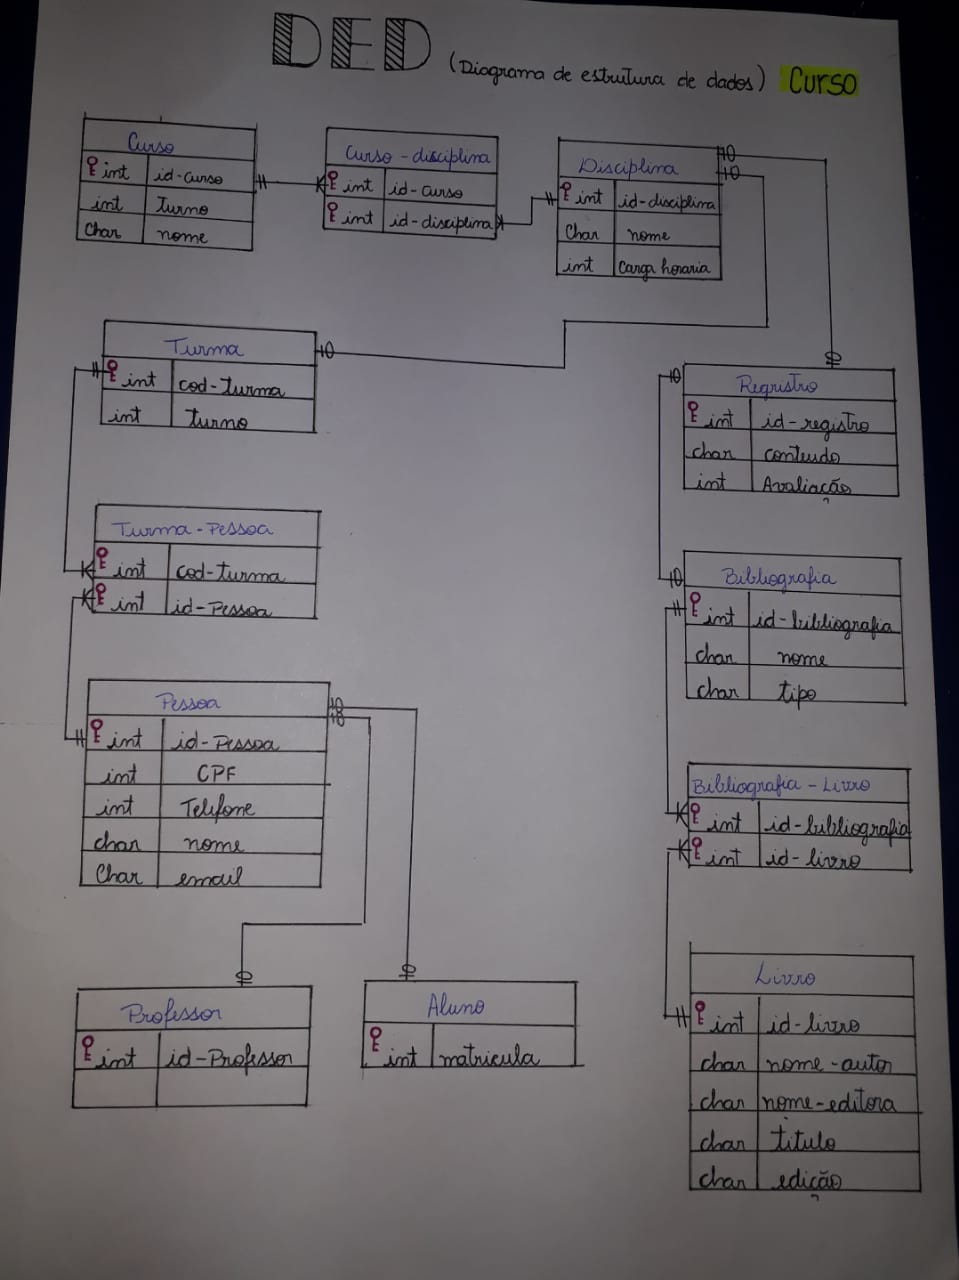 DED (Diagrama de estrutura de dados) Curso
Curso
int id-curso
int Turno
char nome
Curso-disciplina
int id-curso
int id-disciplina
Disciplina
int id-disciplina
char nome
int Carga horaria
Turma
int cod-turma
int Turno
Registro
int id-registro
char conteudo
int Avaliação
Turma-Pessoa
int cod-turma
int id-Pessoa
Bibliografia
int id-bibliografia
char nome
char tipo
Pessoa
int id-Pessoa
int CPF
int Telefone
char nome
Char email
Bibliografia-Livro
int id-bibliografia
int id-livro
Professor
int id-Professor
Aluno
int matricula
Livro
int id-livro
char nome-autor
char nome-editora
char titulo
char edição